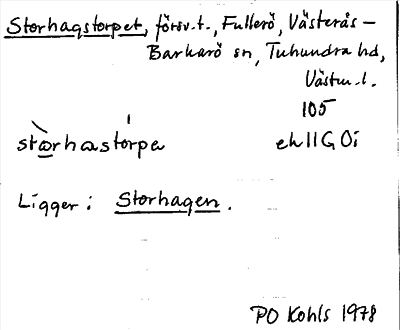 Storhagstorpet, försv.t., Fullerö, Västerås –
Barkarö sn, Tuhundra hd,
Västm.l.
105
stàrhastórpa ek 11G 0i
Ligger i Storhagen.
PO Kohls 1978